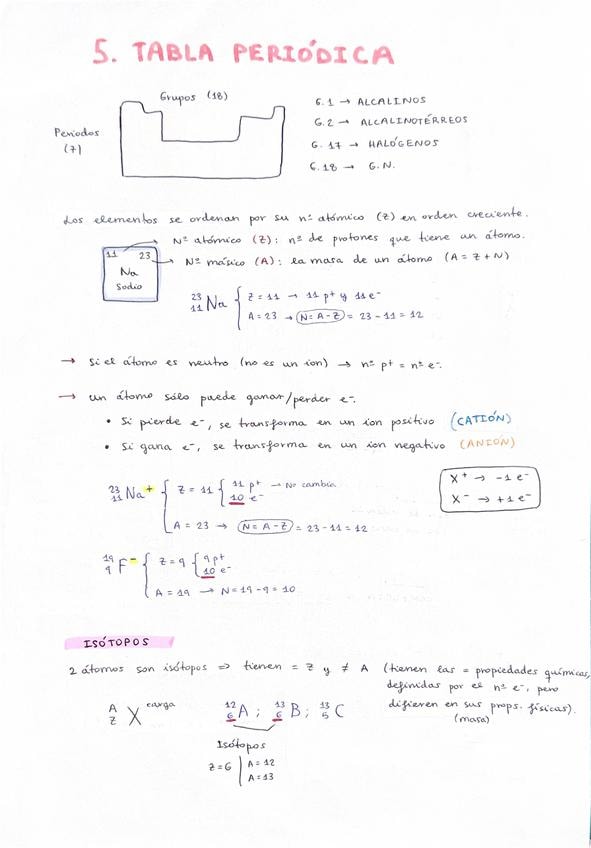 5. TABLA PERIÓDICA
Grupos (18)
Periodos
(7)
G.1 → ALCALINOS
G.2 → ALCALINOTÉRREOS
G.17 → HALÓGENOS
G.18 → G.N.
Los elementos se ordenan por su nº atómico (Z) en orden creciente.
11 23
Na
Sodio
Nº atómico (Z): nº de protones que tiene un átomo.
Nº másico (A): la masa de un átomo (A = Z + N)
²³₁₁Na { Z = 11 → 11 p⁺ y 11 e⁻
A = 23 → N = A - Z = 23 - 11 = 12
→ Si el átomo es neutro (no es un ion) → nº p⁺ = nº e⁻.
→ Un átomo sólo puede ganar/perder e⁻.
• Si pierde e⁻, se transforma en un ion positivo (CATIÓN)
• Si gana e⁻, se transforma en un ion negativo (ANIÓN)
X⁺ → -1 e⁻
X⁻ → +1 e⁻
²³₁₁Na⁺ { Z = 11 { 11 p⁺ → No cambia
10 e⁻
A = 23 → N = A - Z = 23 - 11 = 12
¹⁹₉F⁻ { Z = 9 { 9 p⁺
10 e⁻
A = 19 → N = 19 - 9 = 10
ISÓTOPOS
2 átomos son isótopos ⇒ tienen = Z y ≠ A (tienen las = propiedades químicas,
definidas por el nº e⁻, pero
difieren en sus props. físicas).
(masa)
A
Z X carga
¹²₆A ; ¹³₆B ; ¹³₅C
Isótopos
Z = 6 | A = 12
A = 13